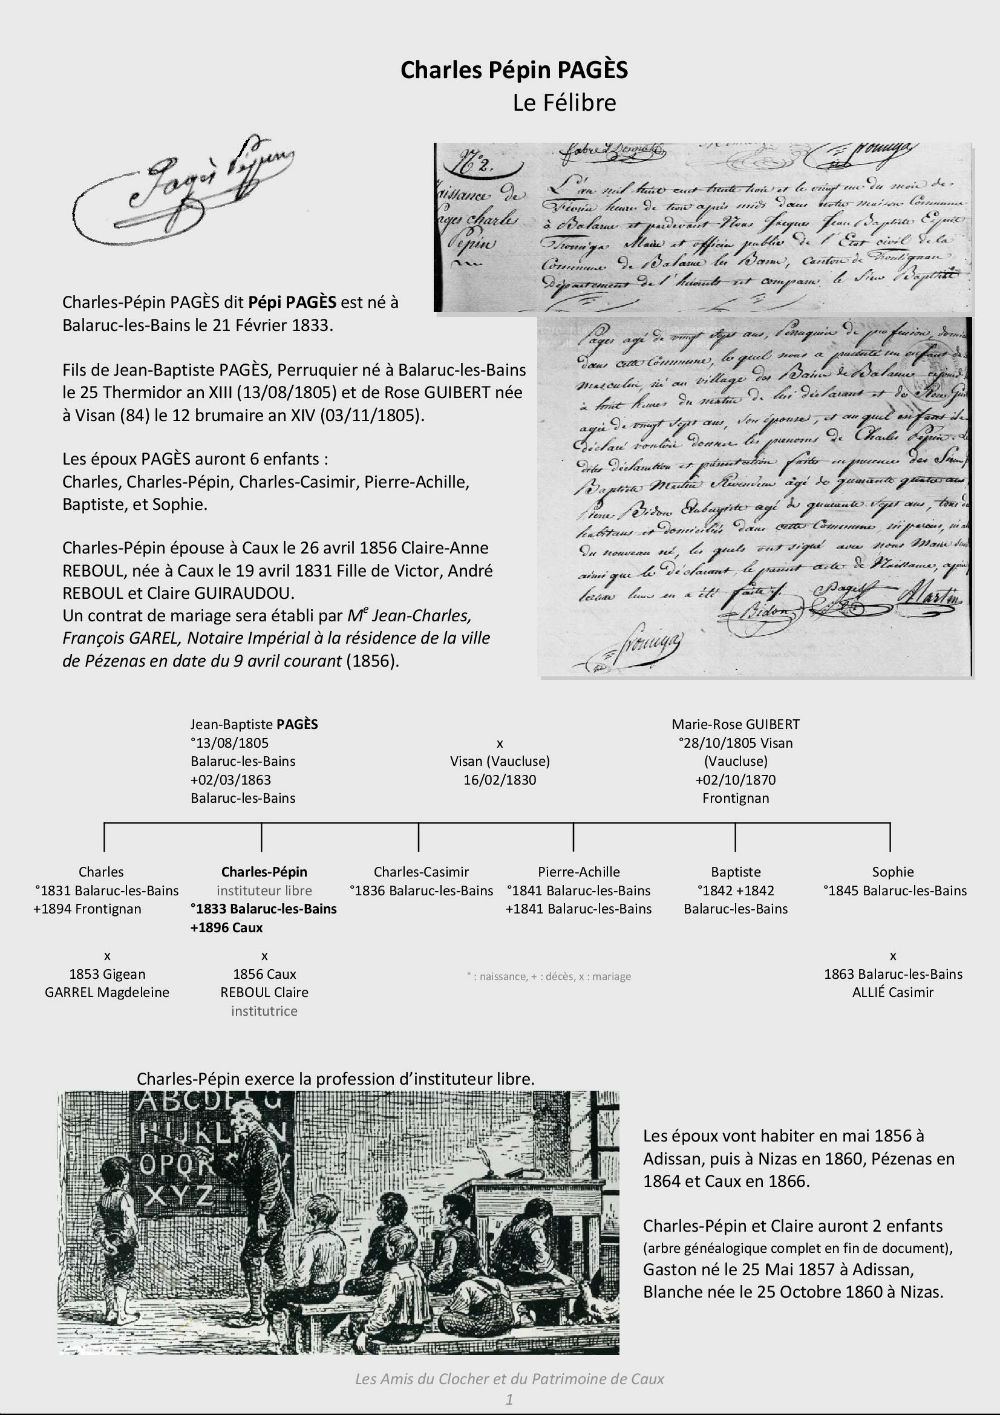 Charles Pépin PAGÈS
Le Félibre
Pagès Pépin
N° 2.
Naissance de
Pages charles
Pepin
L'an mil huit cent trente trois et le vingt un du mois de
Février heure de trois après midi dans notre maison Commune
à Balaruc et pardevant Nous Jacques Jean Baptiste Esprit
Maire et officier public de l'Etat civil de la
Commune de Balaruc les Bains, canton de Frontignan
département de l'hérault est comparu le Sieur Baptiste
Charles-Pépin PAGÈS dit Pépi PAGÈS est né à
Balaruc-les-Bains le 21 Février 1833.
Fils de Jean-Baptiste PAGÈS, Perruquier né à Balaruc-les-Bains
le 25 Thermidor an XIII (13/08/1805) et de Rose GUIBERT née
à Visan (84) le 12 brumaire an XIV (03/11/1805).
Les époux PAGÈS auront 6 enfants :
Charles, Charles-Pépin, Charles-Casimir, Pierre-Achille,
Baptiste, et Sophie.
Charles-Pépin épouse à Caux le 26 avril 1856 Claire-Anne
REBOUL, née à Caux le 19 avril 1831 Fille de Victor, André
REBOUL et Claire GUIRAUDOU.
Un contrat de mariage sera établi par Me Jean-Charles,
François GAREL, Notaire Impérial à la résidence de la ville
de Pézenas en date du 9 avril courant (1856).
Pages agé de vingt sept ans, Perruquier de profession,
dans cette Commune, lequel nous a présenté un enfant de
masculin, né au village des Bains de Balaruc
à huit heures du matin de lui déclarant et de Rose
agée de vingt sept ans, son épouse, et auquel enfant il a
déclaré vouloir donner les prenoms de Charles Pepin
dites déclaration et présentation faites en présence des Sieurs
Baptiste Martin Revendeur âgé de quarante quatre ans
Pierre Bidon Aubergiste agé de quarante sept ans, tous
habitans et domiciliés dans cette Commune
du nouveau né, les quels ont signé avec nous Maire
ainsi que le déclarant, le present acte de Naissance, après
lecture leur en a été faite.
Bidon Pages Martin
Jean-Baptiste PAGÈS
°13/08/1805
Balaruc-les-Bains
+02/03/1863
Balaruc-les-Bains
x
Visan (Vaucluse)
16/02/1830
Marie-Rose GUIBERT
°28/10/1805 Visan
(Vaucluse)
+02/10/1870
Frontignan
Charles
°1831 Balaruc-les-Bains
+1894 Frontignan
x
1853 Gigean
GARREL Magdeleine
Charles-Pépin
instituteur libre
°1833 Balaruc-les-Bains
+1896 Caux
x
1856 Caux
REBOUL Claire
institutrice
Charles-Casimir
°1836 Balaruc-les-Bains
Pierre-Achille
°1841 Balaruc-les-Bains
+1841 Balaruc-les-Bains
Baptiste
°1842 +1842
Balaruc-les-Bains
Sophie
°1845 Balaruc-les-Bains
x
1863 Balaruc-les-Bains
ALLIÉ Casimir
° : naissance, + : décès, x : mariage
Charles-Pépin exerce la profession d'instituteur libre.
ABCDEFG
HIJKLMN
OPQR
XYZ
Les époux vont habiter en mai 1856 à
Adissan, puis à Nizas en 1860, Pézenas en
1864 et Caux en 1866.
Charles-Pépin et Claire auront 2 enfants
(arbre généalogique complet en fin de document),
Gaston né le 25 Mai 1857 à Adissan,
Blanche née le 25 Octobre 1860 à Nizas.
Les Amis du Clocher et du Patrimoine de Caux
1